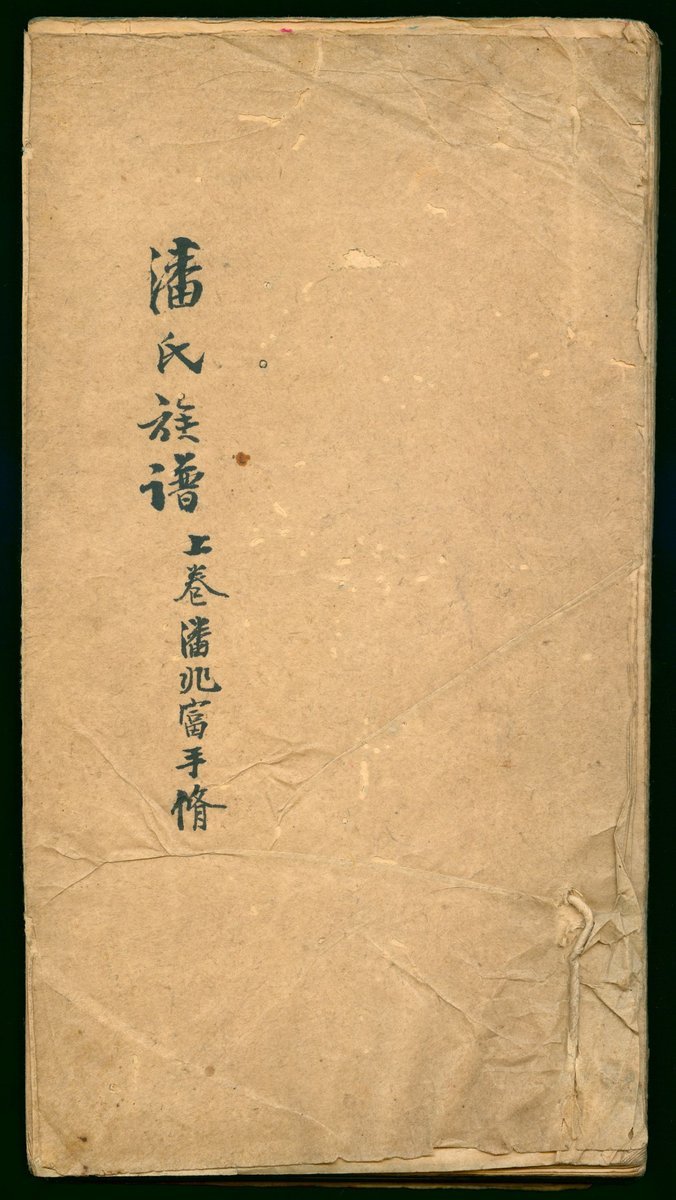 潘氏族谱
上卷潘兆富手脩